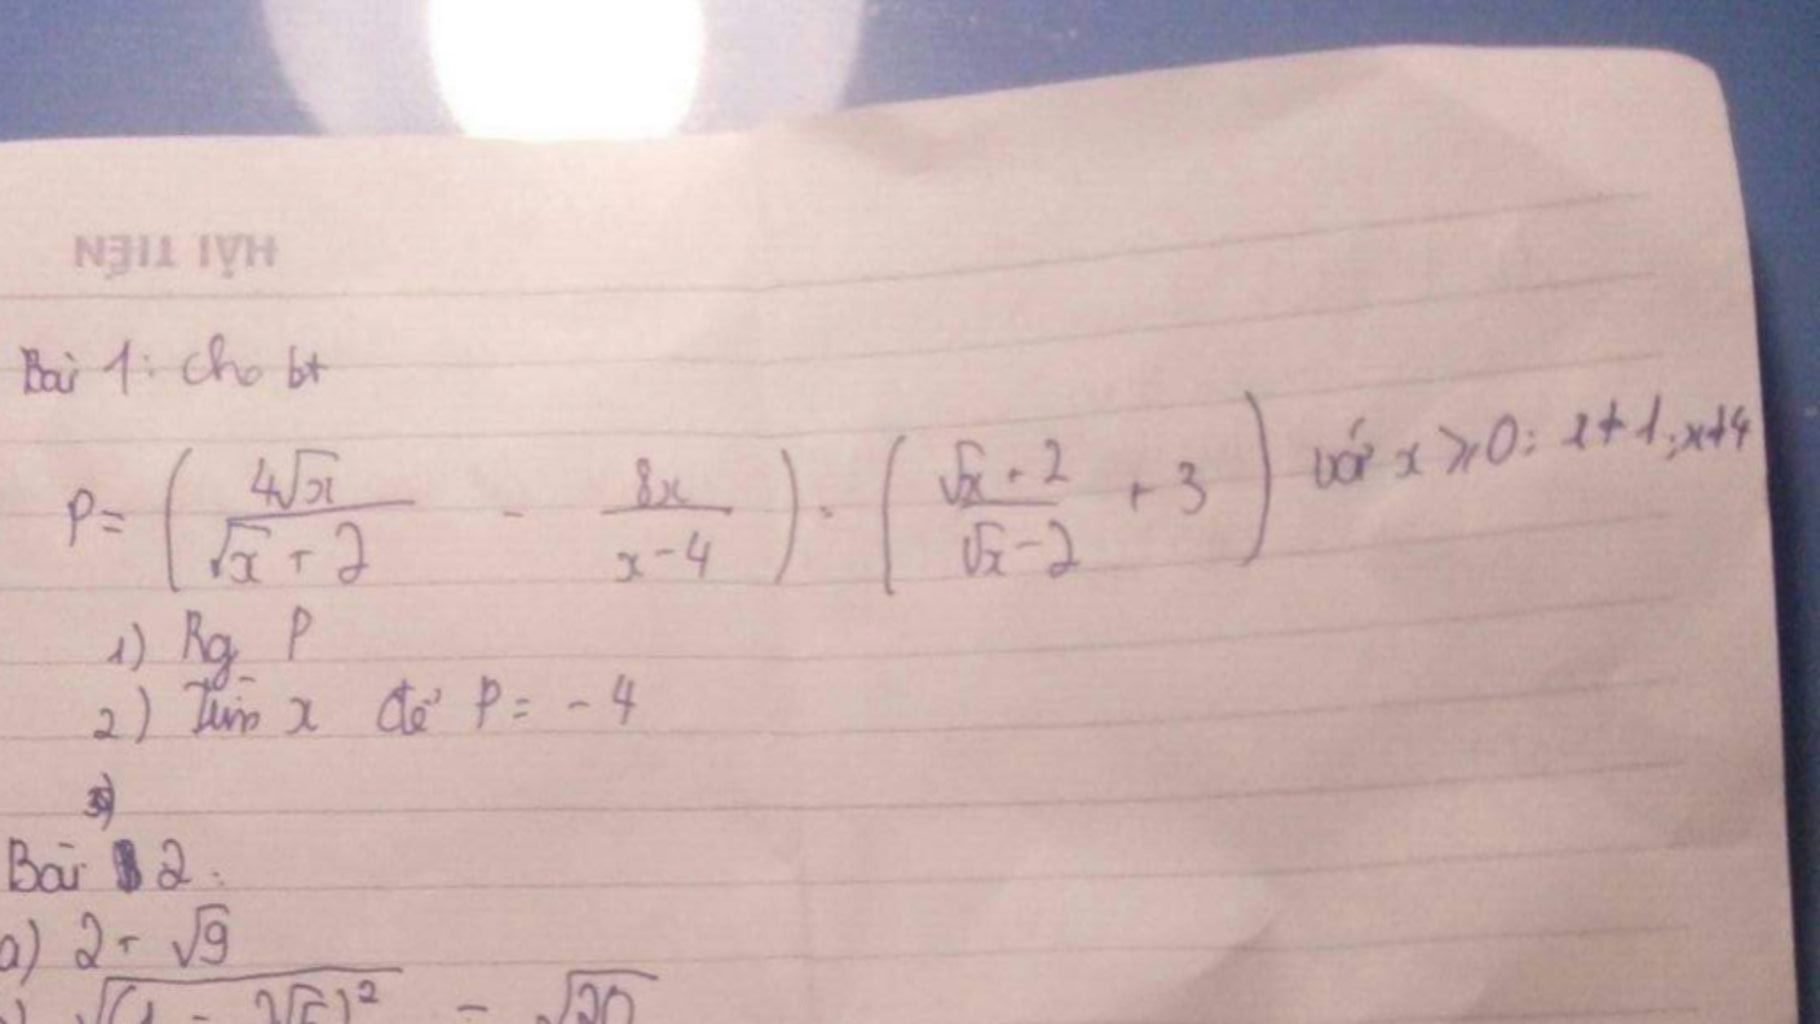 HẢI TIẾN
Bài 1: Cho bt
P = ( 4√x / √x + 2 - 8x / x - 4 ) . ( √x + 2 / √x - 2 + 3 ) với x ⩾ 0; x ≠ 1; x ≠ 4
1) Rg P
2) Tìm x để P = - 4
3)
Bài 2:
a) 2 + √9